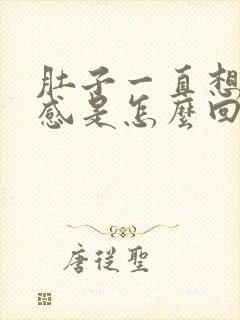 肚子一直想
感是怎麼回
唐從聖